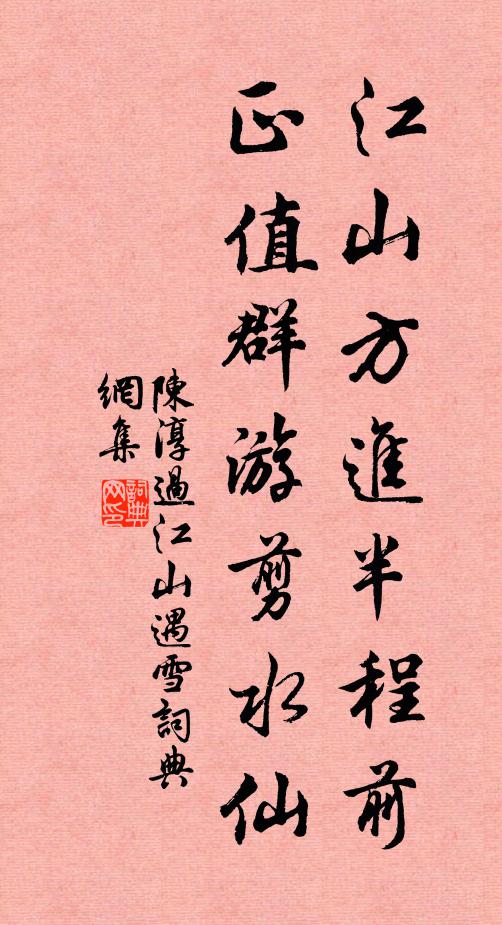 江山方進半程前
正值群游剪水仙
陳淳過江山遇雪詞典
網集
詞典
网印